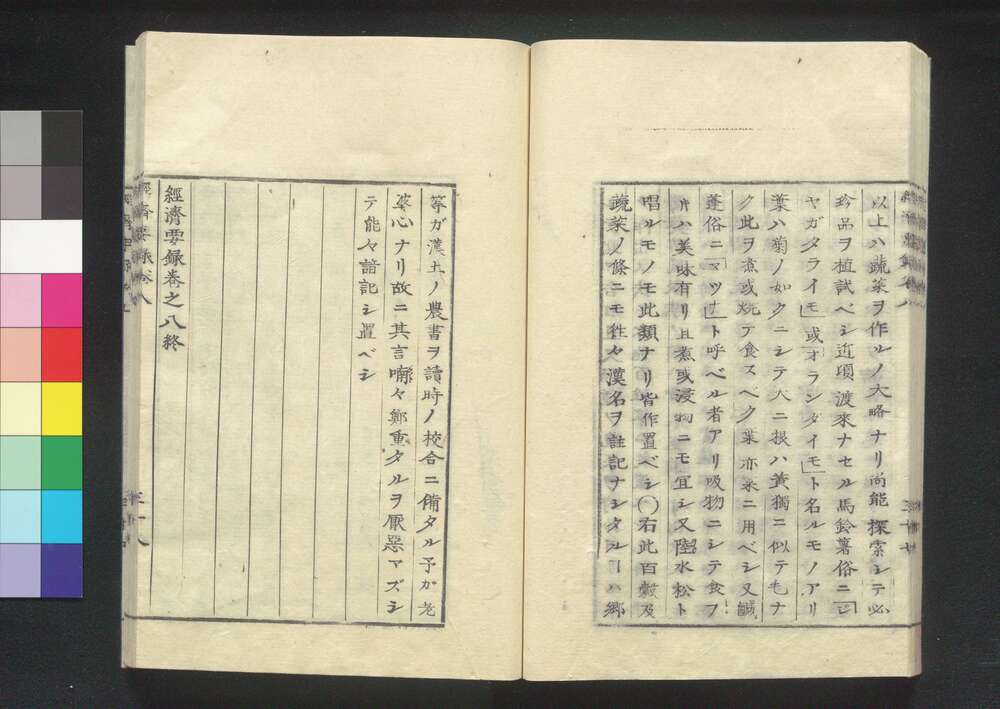 以上ハ蔬菜ヲ作ルノ大略ナリ尚能探索シテ必
珍品ヲ植試ベシ近頃渡來ナセル馬鈴薯俗ニ「ジ
ヤガタライモ」或「オランダイモ」ト名ルモノアリ
葉ハ菊ノ如クニシテ大ニ根ハ黄獨ニ似テ毛ナ
ク此ヲ煮或燒テ食スベク葉亦菜ニ用ベシ又鹹
蓬俗ニ「マツナ」ト呼ベル者アリ吸物ニシテ食フ
ニハ美味有リ且煮或浸物ニモ宜シ又陸水松ト
唱ルモノモ此類ナリ皆作置ベシ〇右此百穀及
蔬菜ノ條ニモ往々漢名ヲ註記ナシタルヿハ郷
等ガ漢土ノ農書ヲ讀時ノ校合ニ備タル予ガ老
婆心ナリ故ニ其言喃々鄭重タルヲ厭惡マズシ
テ能々諳記シ置ベシ
經濟要録巻之八終
經濟要録巻八
三十八